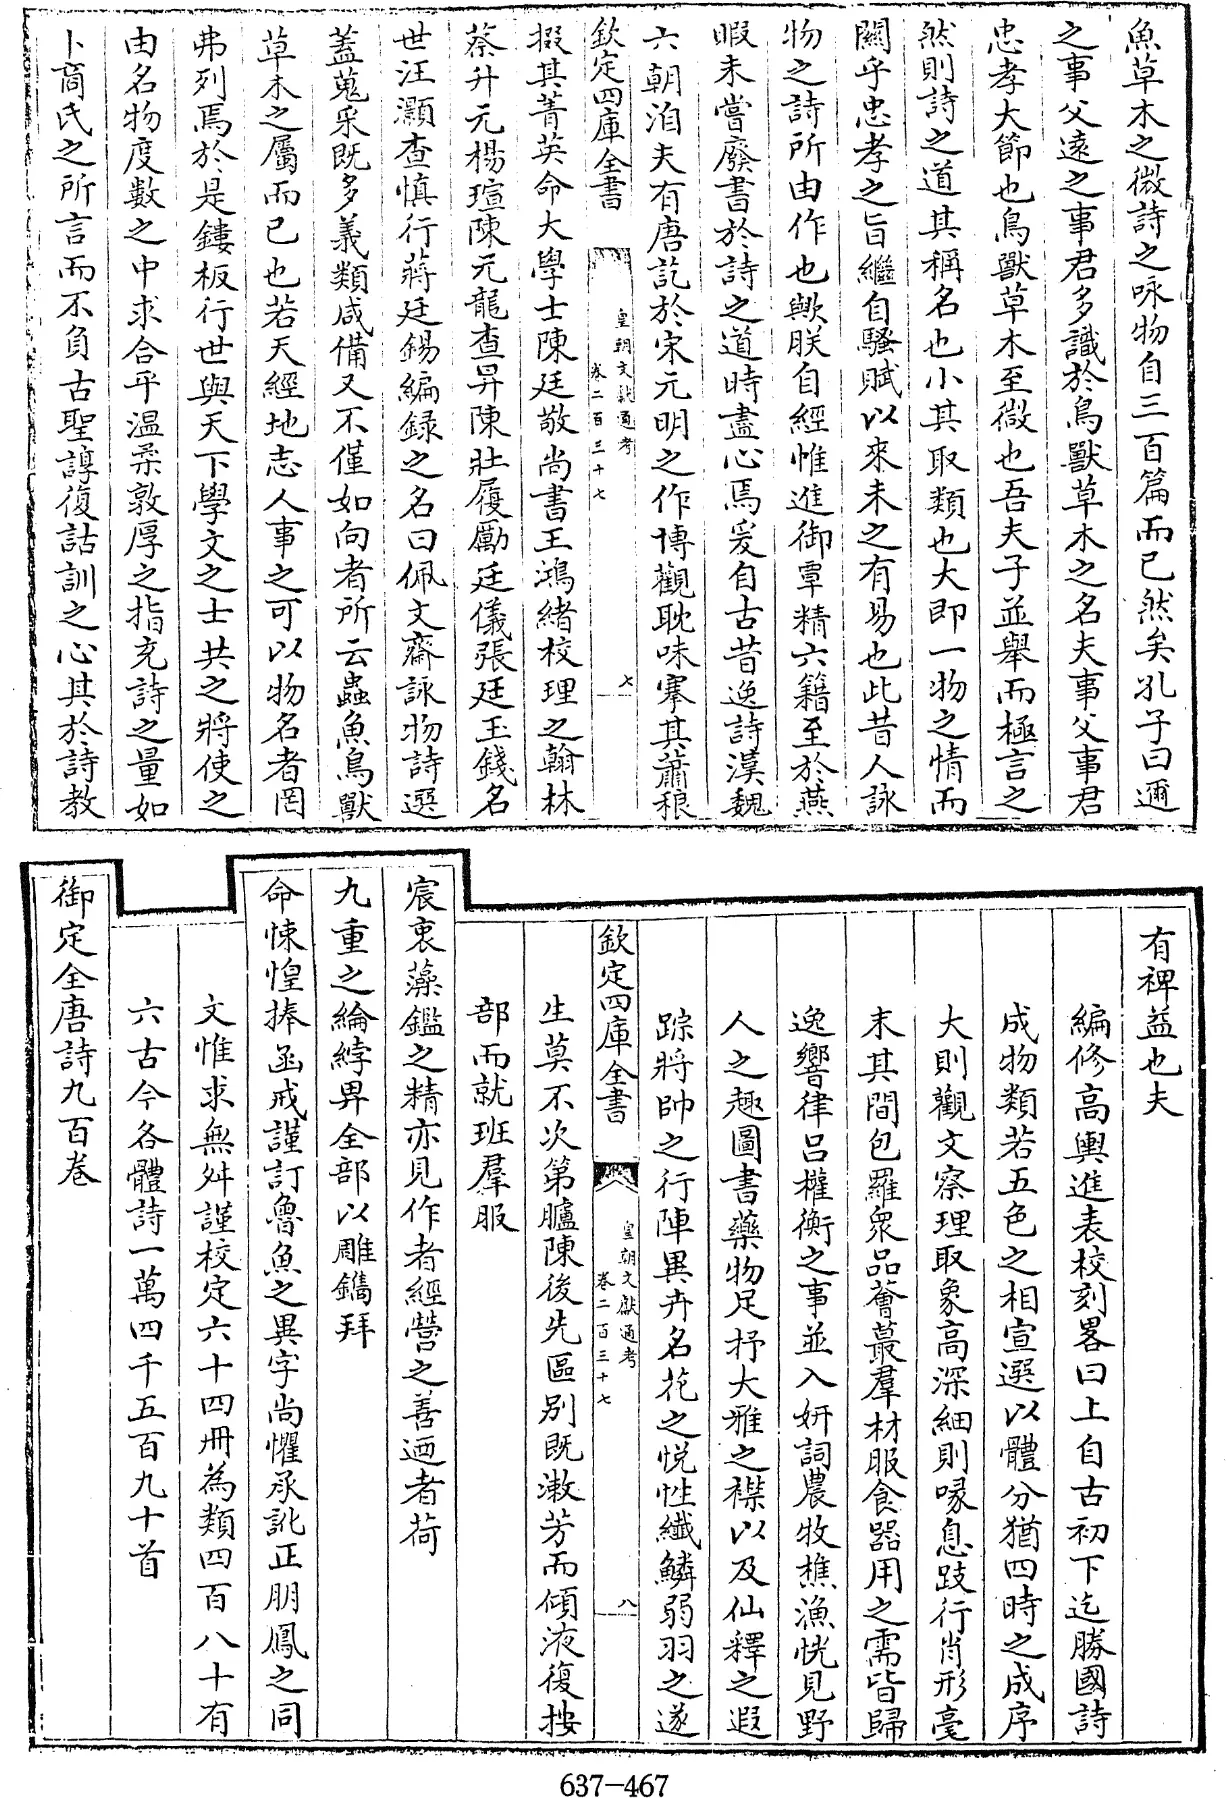 魚草木之微詩之咏物自三百篇而已然矣孔子曰邇
之事父遠之事君多識於鳥獸草木之名夫事父事君
忠孝大節也鳥獸草木至微也吾夫子並舉而極言之
然則詩之道其稱名也小其取類也大即一物之情而
關乎忠孝之旨繼自騷賦以來未之有易也此昔人詠
物之詩所由作也歟朕自經帷進御覃精六籍至於燕
暇未嘗廢書於詩之道時盡心焉爰自古昔逸詩漢魏
六朝洎夫有唐訖於宋元明之作博觀耽味搴其蕭稂
欽定四庫全書
皇朝文獻通考
卷二百三十七
七
掇其菁英命大學士陳廷敬尚書王鴻緒校理之翰林
蔡升元楊瑄陳元龍查昇陳壯履勵廷儀張廷玉錢名
世汪灝查慎行蔣廷錫編録之名曰佩文齋詠物詩選
蓋蒐采既多義類咸備又不僅如向者所云蟲魚鳥獸
草木之屬而已也若天經地志人事之可以物名者罔
弗列焉於是鏤板行世與天下學文之士共之將使之
由名物度數之中求合乎温柔敦厚之指充詩之量如
卜商氏之所言而不負古聖諄復詁訓之心其於詩教
有裨益也夫
編修高輿進表校刻畧曰上自古初下迄勝國詩
成物類若五色之相宣選以體分猶四時之成序
大則觀文察理取象高深細則喙息跂行肖形毫
末其間包羅衆品薈蕞羣材服食器用之需皆歸
逸響律呂權衡之事並入妍詞農牧樵漁恍見野
人之趣圖書藥物足抒大雅之襟以及仙釋之遐
踪將帥之行陣異卉名花之悅性纖鱗弱羽之遂
欽定四庫全書
皇朝文獻通考
卷二百三十七
八
生莫不次第臚陳後先區别既漱芳而傾液復按
部而就班羣服
宸衷藻鑑之精亦見作者經營之善廼者荷
九重之綸綍畀全部以雕鐫拜
命悚惶捧函戒謹訂魯魚之異字尚懼承訛正朋鳳之同
文惟求無舛謹校定六十四冊為類四百八十有
六古今各體詩一萬四千五百九十首
御定全唐詩九百卷
637-467